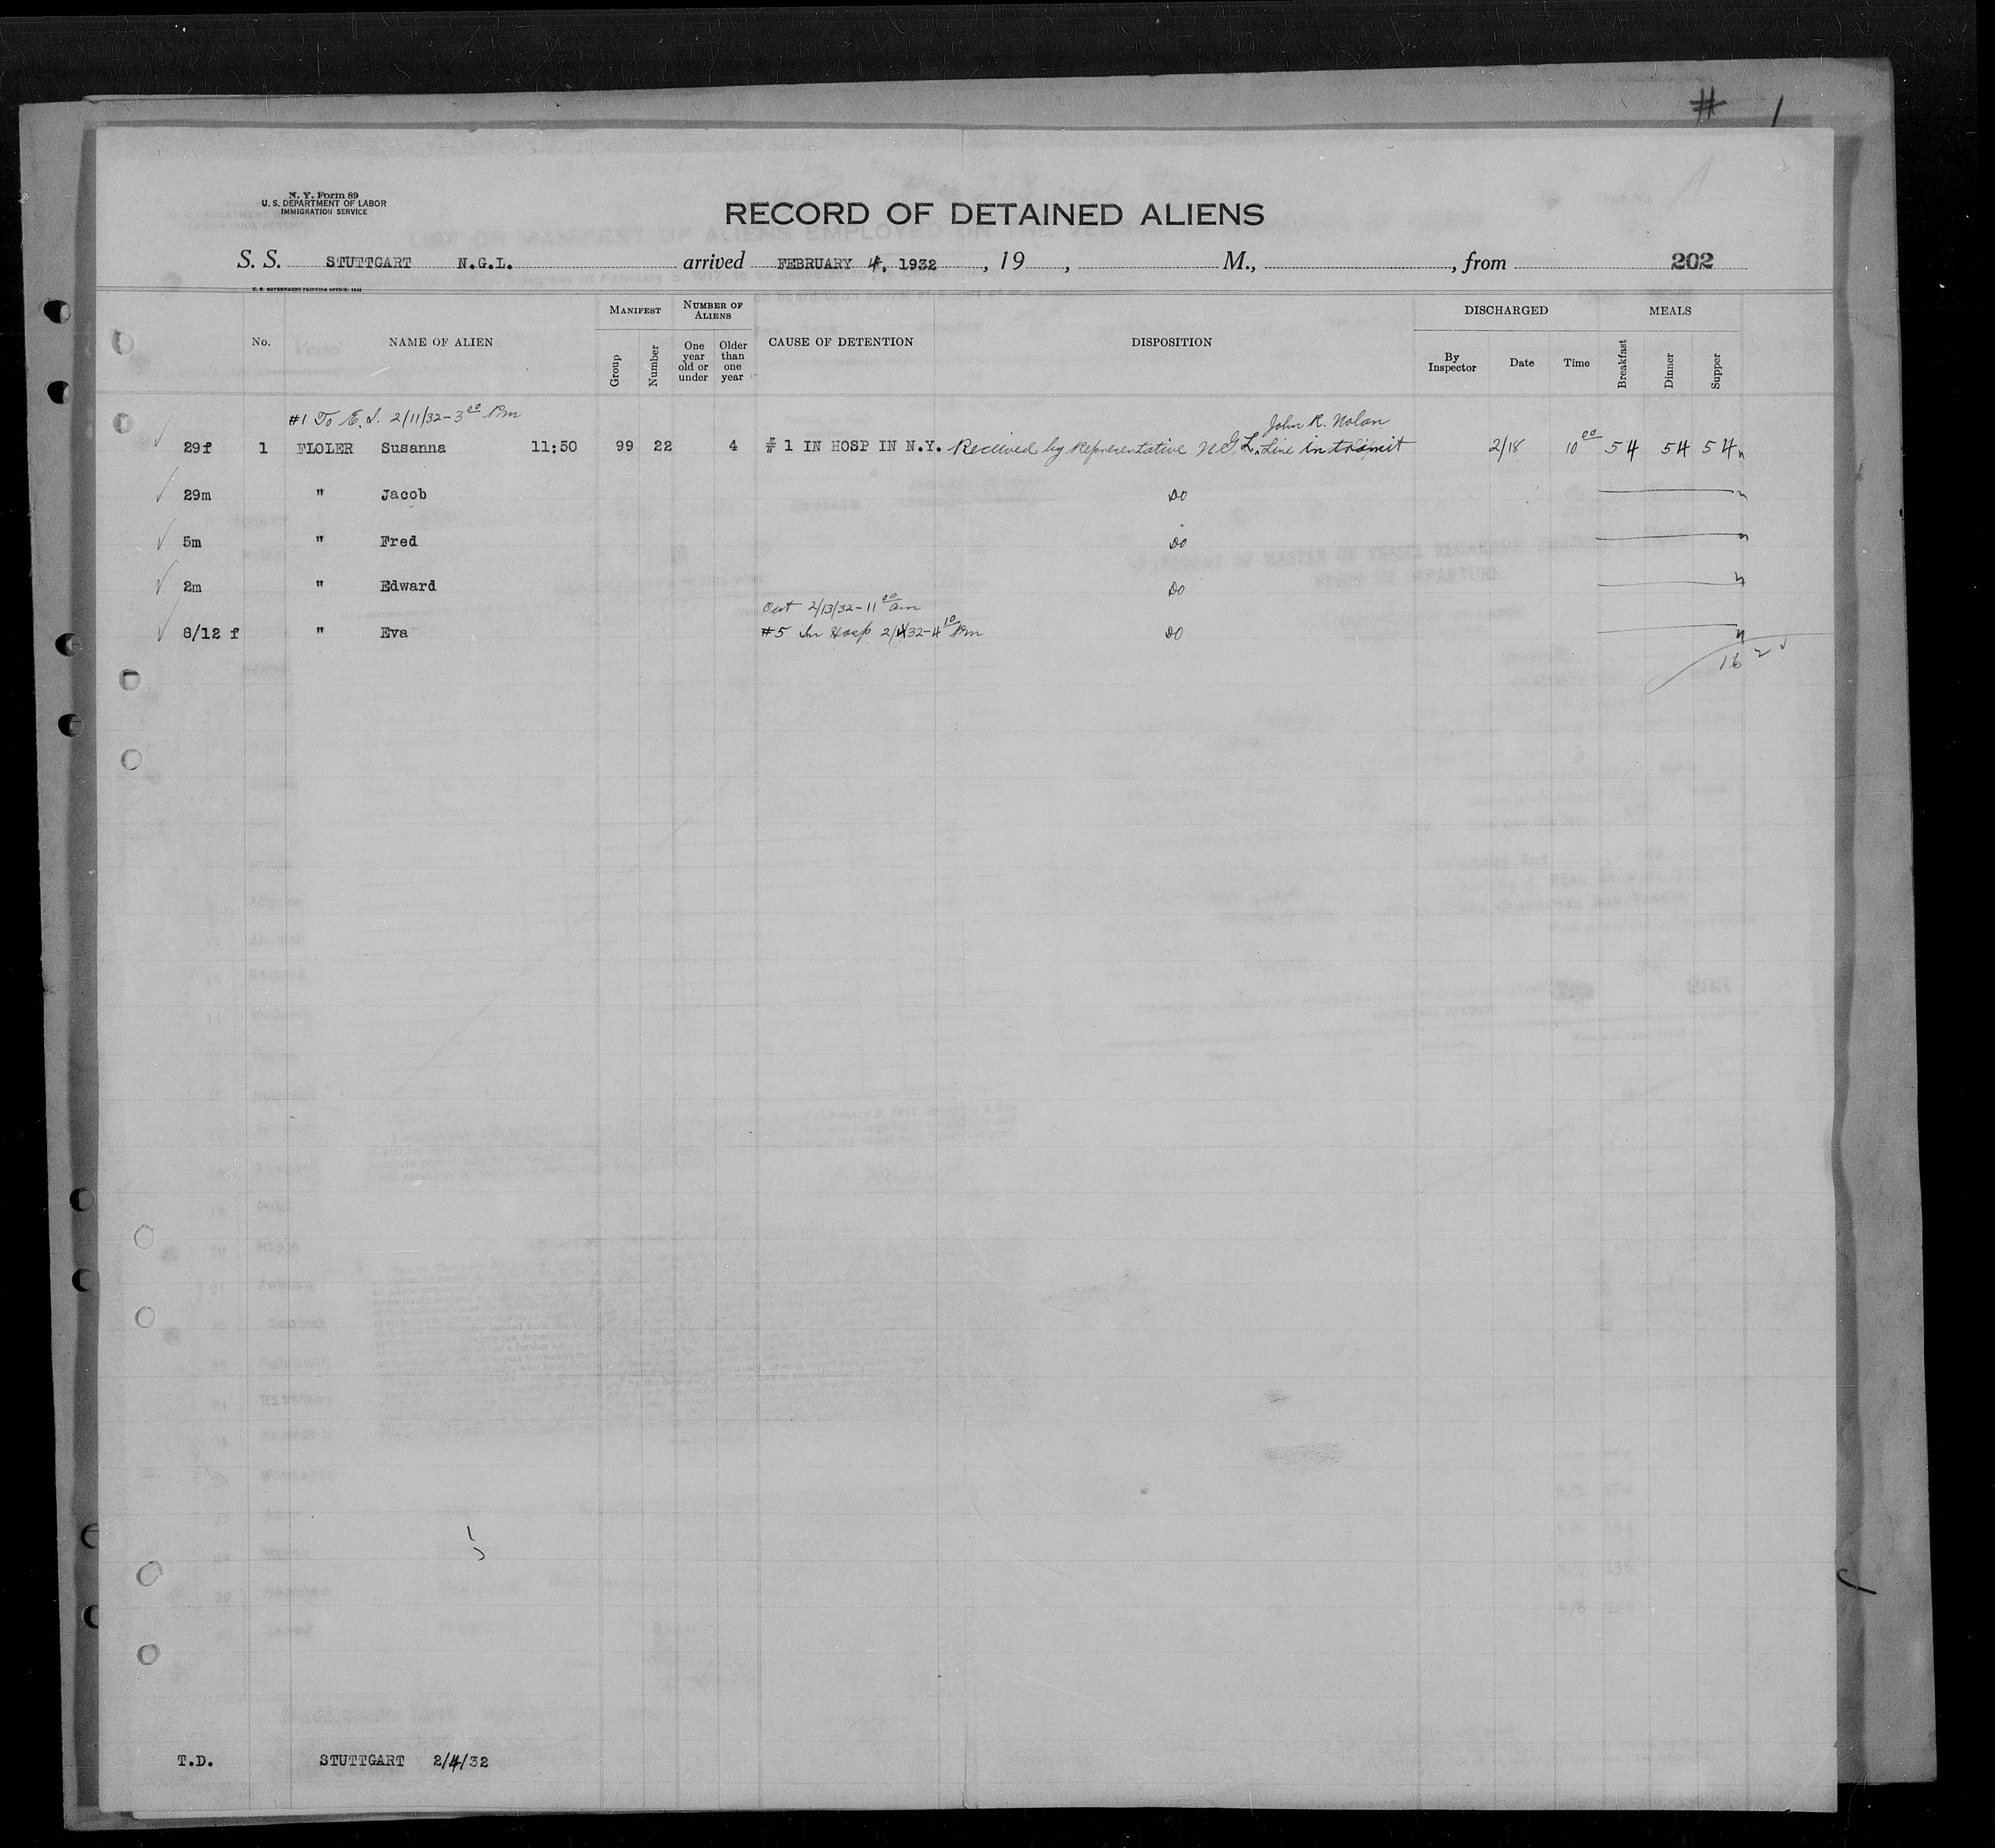 # 1
N. Y. Form 89
U. S. DEPARTMENT OF LABOR
IMMIGRATION SERVICE
RECORD OF DETAINED ALIENS
S. S. STUTTGART N.G.L. arrived FEBRUARY 4, 1932 , 19 , M., , from 202
U. S. GOVERNMENT PRINTING OFFICE: 1931
No. NAME OF ALIEN MANIFEST Group Number NUMBER OF ALIENS One year old or under Older than one year CAUSE OF DETENTION DISPOSITION DISCHARGED By Inspector Date Time MEALS Breakfast Dinner Supper
#1 To E. I. 2/11/32-3 00 Pm John R. Nolan
29f 1 FLOLER Susanna 11:50 99 22 4 # 1 IN HOSP IN N.Y. Received by Representative N.G.L. Line in transit 2/18 10 00 54 54 54
29m " Jacob Do
5m " Fred Do
2m " Edward Do
Out 2/13/32-11 00 am
8/12 f " Eva #5 In Hosp 2/4/32-4 10 Pm Do
162
T.D. STUTTGART 2/4/32